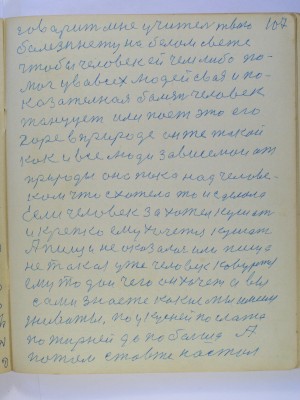 говарит мне учител твою 107
балезн нету на белом свете
чтобы человек ей чем либо по-
мог у вавсех людей свая и по-
казателная балезн человек
танцует или поет это его
горе в природе он же такой
как и все люди зависемой от
природы она пака над челове-
ком что схотела то и сделала
Если человек захотел кушат
и крепко ему хочется кушат
А пищы не оказалося или пища
не такая уже человек
ему то дай чего он хочет а вы
сами знаете какие мы
по
пожирней да побалше А
потом ставже настал